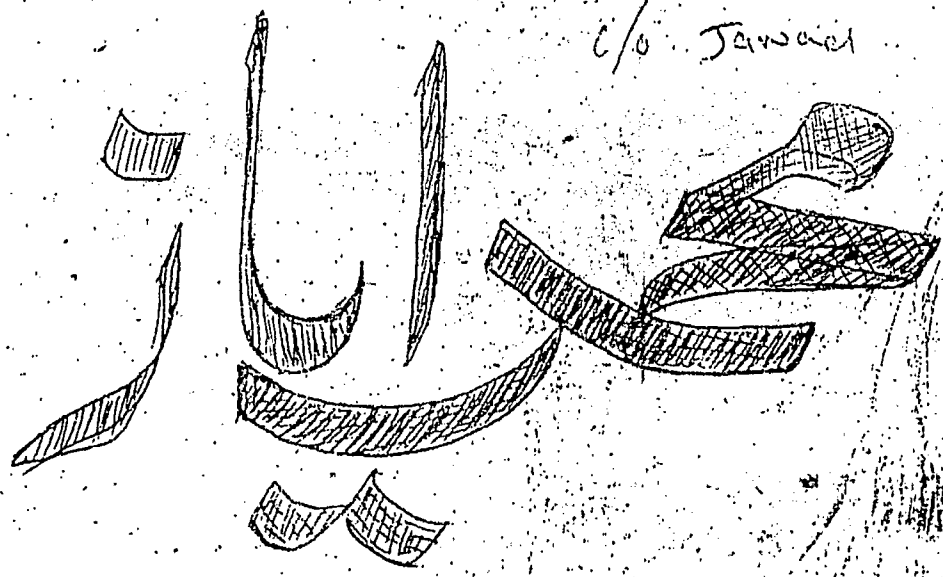 c/o Jawad
محمد ایاز